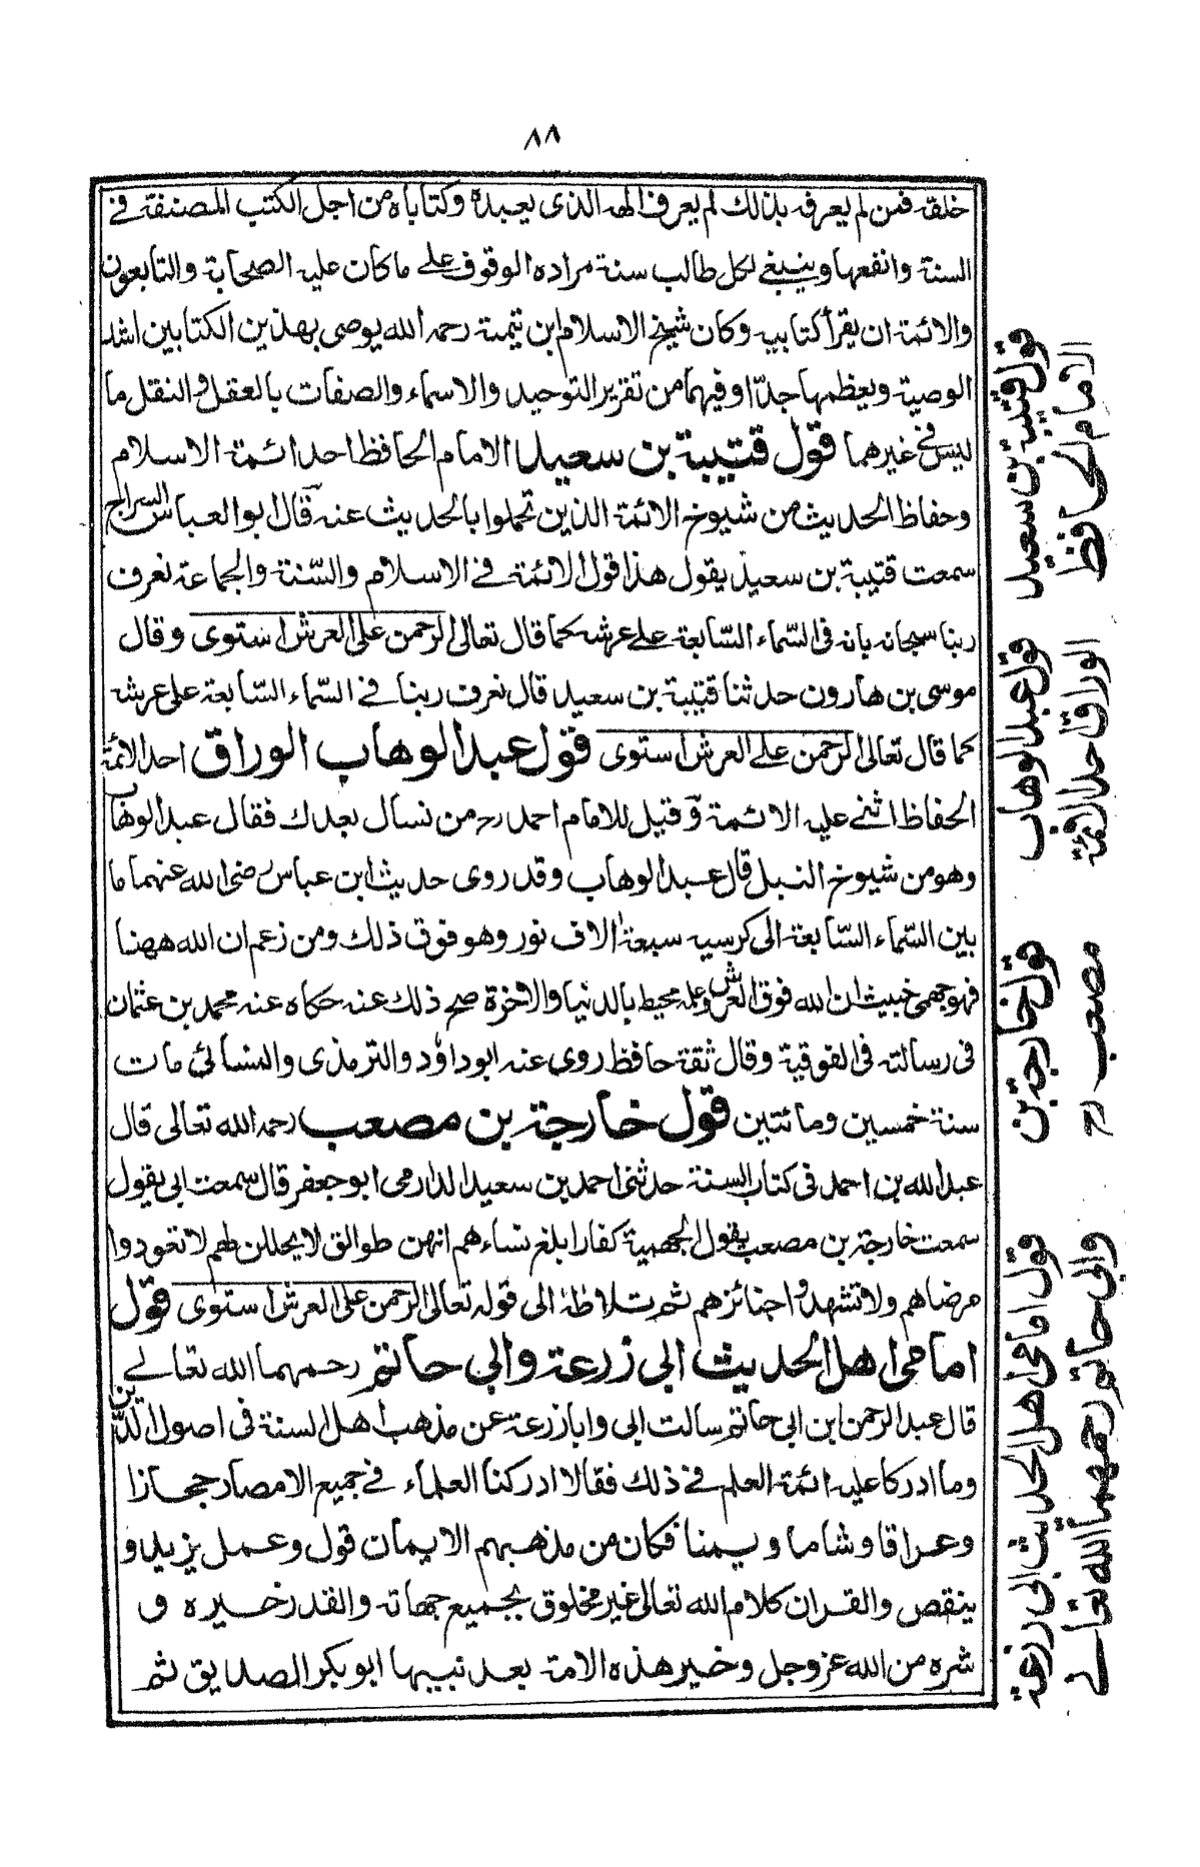 ٨٨
خلقه فمن لم يعرفه بذلك لم يعرف الهه الذى يعبده وكتاباه من اجل الكتب المصنفة فى
السنة وانفعها وينبغى لكل طالب سنة مراده الوقوف على ما كان عليه الصحابة والتابعون
والائمة ان يقرأ كتابيه وكان شيخ الاسلام ابن تيمية رحمه الله يوصى بهذين الكتابين اشد
الوصية ويعظمها جدّا وفيهما من تقرير التوحيد والاسماء والصفات بالعقل والنقل ما
ليس فى غيرهما قول قتيبة بن سعيد الامام الحافظ احد ائمة الاسلام
وحفاظ الحديث من شيوخ الائمة الذين تجملوا بالحديث عنه قال ابو العباس السراج
سمعت قتيبة بن سعيد يقول هذا قول الائمة فى الاسلام والسّنة والجماعة نعرف
ربنا سبحانه بانه فى السّماء السّابعة على عرشه كما قال تعالى الرحمن على العرش استوى وقال
موسى بن هارون حدثنا قتيبة بن سعيد قال نعرف ربنا فى السّماء السّابعة على عرشه
كما قال تعالى الرحمن على العرش استوى قول عبد الوهاب الوراق احد الائمة
الحفاظ اثنى عليه الائمة وقيل للامام احمد رح من نسأل بعدك فقال عبد الوهاب
وهو من شيوخ النبل قال عبد الوهاب وقد روى حديث ابن عباس رضى الله عنهما ما
بين السّماء السّابعة الى كرسيه سبعة الاف نور وهو فوق ذلك ومن زعم ان الله ههنا
فهو جهمى خبيث ان الله فوق العرش وعلمه محيط بالدنيا والاخرة صح ذلك عنه حكاه عنه محمد بن عثمان
فى رسالته فى الفوقية وقال ثقة حافظ روى عنه ابو داؤد والترمذى والنسائى مات
سنة خمسين ومائتين قول خارجة بن مصعب رحمه الله تعالى قال
عبد الله بن احمد فى كتاب السنة حدثنى احمد بن سعيد الدارمى ابو جعفر قال سمعت ابى يقول
سمعت خارجة بن مصعب يقول الجهمية كفار ابلغ نساءهم انهن طوالق لا يحللن لهم لا تعودوا
مرضاهم ولا تشهدوا جنائزهم ثم تلا طه الى قوله تعالى الرحمن على العرش استوى قول
امامى اهل الحديث ابى زرعة وابى حاتم رحمهما الله تعالى
قال عبد الرحمن ابن ابى حاتم سالت ابى وابا زرعة عن مذهب اهل السنة فى اصول الدّين
وما ادركا عليه ائمة العلم فى ذلك فقالا ادركنا العلماء فى جميع الامصار حجازا
وعراقا وشاما ويمنا فكان من مذهبهم الايمان قول وعمل يزيد و
ينقص والقران كلام الله تعالى غير مخلوق بجميع جهاته والقدر خيره و
شره من الله عز وجل وخير هذه الامة بعد نبيها ابو بكر الصديق ثم
قول قتيبة بن سعيد
الامام الحافظ
قول عبد الوهاب
الوراق احد الائمة
قول خارجة بن
مصعب رح
قول امامى اهل الحديث ابى زرعة
وابى حاتم رحمهما الله تعالى